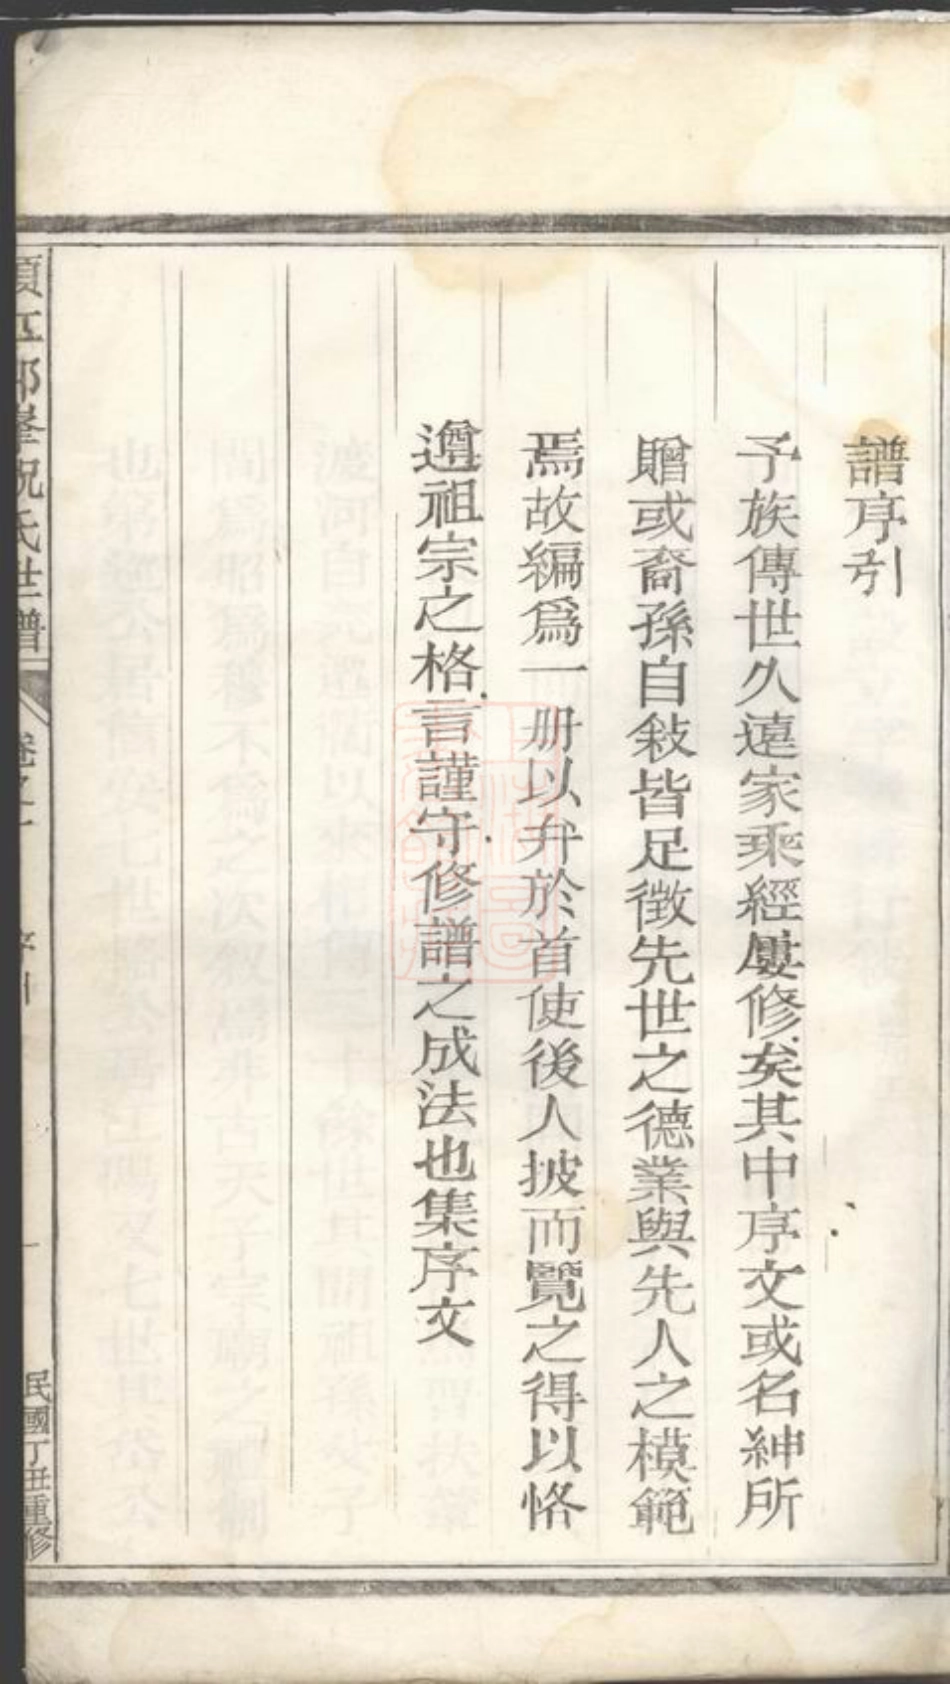 譜序引
予族傳世久遠家乘經屢修矣其中序文或名紳所
贈或裔孫自敍皆足徵先世之德業與先人之模範
焉故編爲一册以弁於首使後人披而覽之得以恪
遵祖宗之格言謹守修譜之成法也集序文
郎峯祝氏世譜
卷之一
序引
一
民國丁丑重修